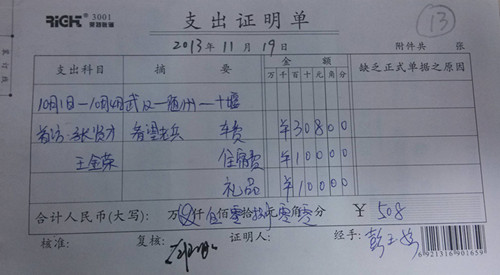 RIGHT® 3001
支出证明单
13
2013年11月19日
附件共 张
支出科目 摘要 金额 缺乏正式单据之原因
万千百十元角分
10月1日—10月4日武汉—随州—十堰
希望老兵 车费 ¥30800
王全荣 住宿费 ¥10000
礼品 ¥10000
合计人民币(大写): 万 仟伍佰零拾捌元零角零分 ¥508
核准: 复核: 证明人: 经手:
6921316901659